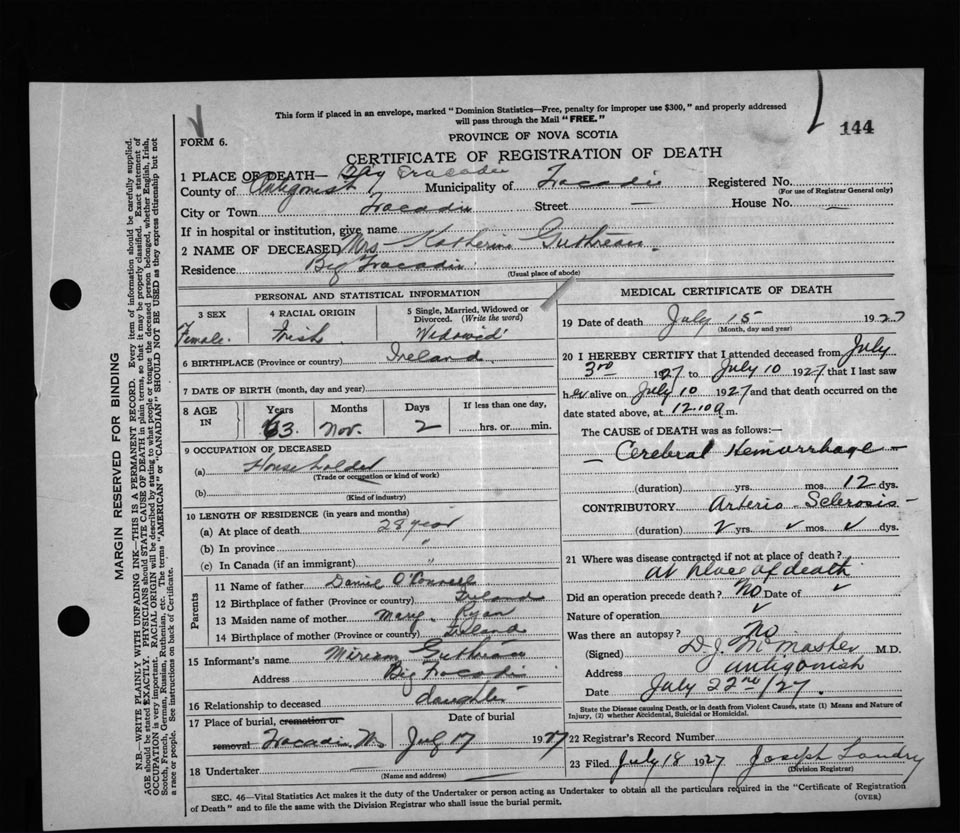 This form if placed in an envelope, marked "Dominion Statistics—Free, penalty for improper use $300," and properly addressed
will pass through the Mail "FREE."
144
FORM 6.
PROVINCE OF NOVA SCOTIA
CERTIFICATE OF REGISTRATION OF DEATH
1 PLACE OF DEATH— Tracadie
County of Antigonish Municipality of Tracadie Registered No.
(For use of Registrar General only)
City or Town Tracadie Street — House No. —
If in hospital or institution, give name
2 NAME OF DECEASED Mrs Katherine
Residence Big Tracadie
(Usual place of abode)
PERSONAL AND STATISTICAL INFORMATION
3 SEX 4 RACIAL ORIGIN 5 Single, Married, Widowed or Divorced. (Write the word)
Female. Irish Widowed
6 BIRTHPLACE (Province or country) Ireland
7 DATE OF BIRTH (month, day and year)
8 AGE IN Years Months Days If less than one day,
63 Nov. 2 hrs. or min.
9 OCCUPATION OF DECEASED
(a) Householder
(Trade or occupation or kind of work)
(b)
(Kind of industry)
10 LENGTH OF RESIDENCE (in years and months)
(a) At place of death 28 year
(b) In province "
(c) In Canada (if an immigrant) "
Parents
11 Name of father Daniel O'Connell
12 Birthplace of father (Province or country) Ireland
13 Maiden name of mother Mary Ryan
14 Birthplace of mother (Province or country) Ireland
15 Informant's name Miriam
Address Big Tracadie
16 Relationship to deceased daughter
17 Place of burial, cremation or removal Tracadie NS
Date of burial July 17 1927
18 Undertaker
(Name and address)
MEDICAL CERTIFICATE OF DEATH
19 Date of death July 15 1927
(Month, day and year)
20 I HEREBY CERTIFY that I attended deceased from July
3rd 1927 to July 10 1927 that I last saw
her alive on July 10 1927 and that death occurred on the
date stated above, at 12.10 a m.
The CAUSE OF DEATH was as follows:—
— Cerebral Hemorrhage —
(duration) yrs. mos. 12 dys.
CONTRIBUTORY Arterio Sclerosis —
(duration) ✓ yrs. ✓ mos. ✓ dys.
21 Where was disease contracted if not at place of death?
at place of death
Did an operation precede death? No Date of ✓
Nature of operation ✓
Was there an autopsy? No
(Signed) D.J. McMaster M.D.
Address Antigonish
Date July 22nd/27.
State the Disease causing Death, or in death from Violent Causes, state (1) Means and Nature of
Injury, (2) whether Accidental, Suicidal or Homicidal.
22 Registrar's Record Number
23 Filed July 18 1927 Joseph Landry
(Division Registrar)
SEC. 46—Vital Statistics Act makes it the duty of the Undertaker or person acting as Undertaker to obtain all the particulars required in the "Certificate of Registration
of Death" and to file the same with the Division Registrar who shall issue the burial permit.
(OVER)
MARGIN RESERVED FOR BINDING
N.B.—WRITE PLAINLY WITH UNFADING INK—THIS IS A PERMANENT RECORD. Every item of information should be carefully supplied.
AGE should be stated EXACTLY. PHYSICIANS should STATE CAUSE OF DEATH in plain terms, so that it may be properly classified. Exact statement of
OCCUPATION is very important. RACIAL ORIGIN will be described by stating to what people or tongue the deceased person belonged, whether English, Irish,
Scotch, French, German, Russian, Ruthenian, etc. The terms "AMERICAN" or "CANADIAN" SHOULD NOT BE USED as they express citizenship but not
a race or people. See instructions on back of Certificate.